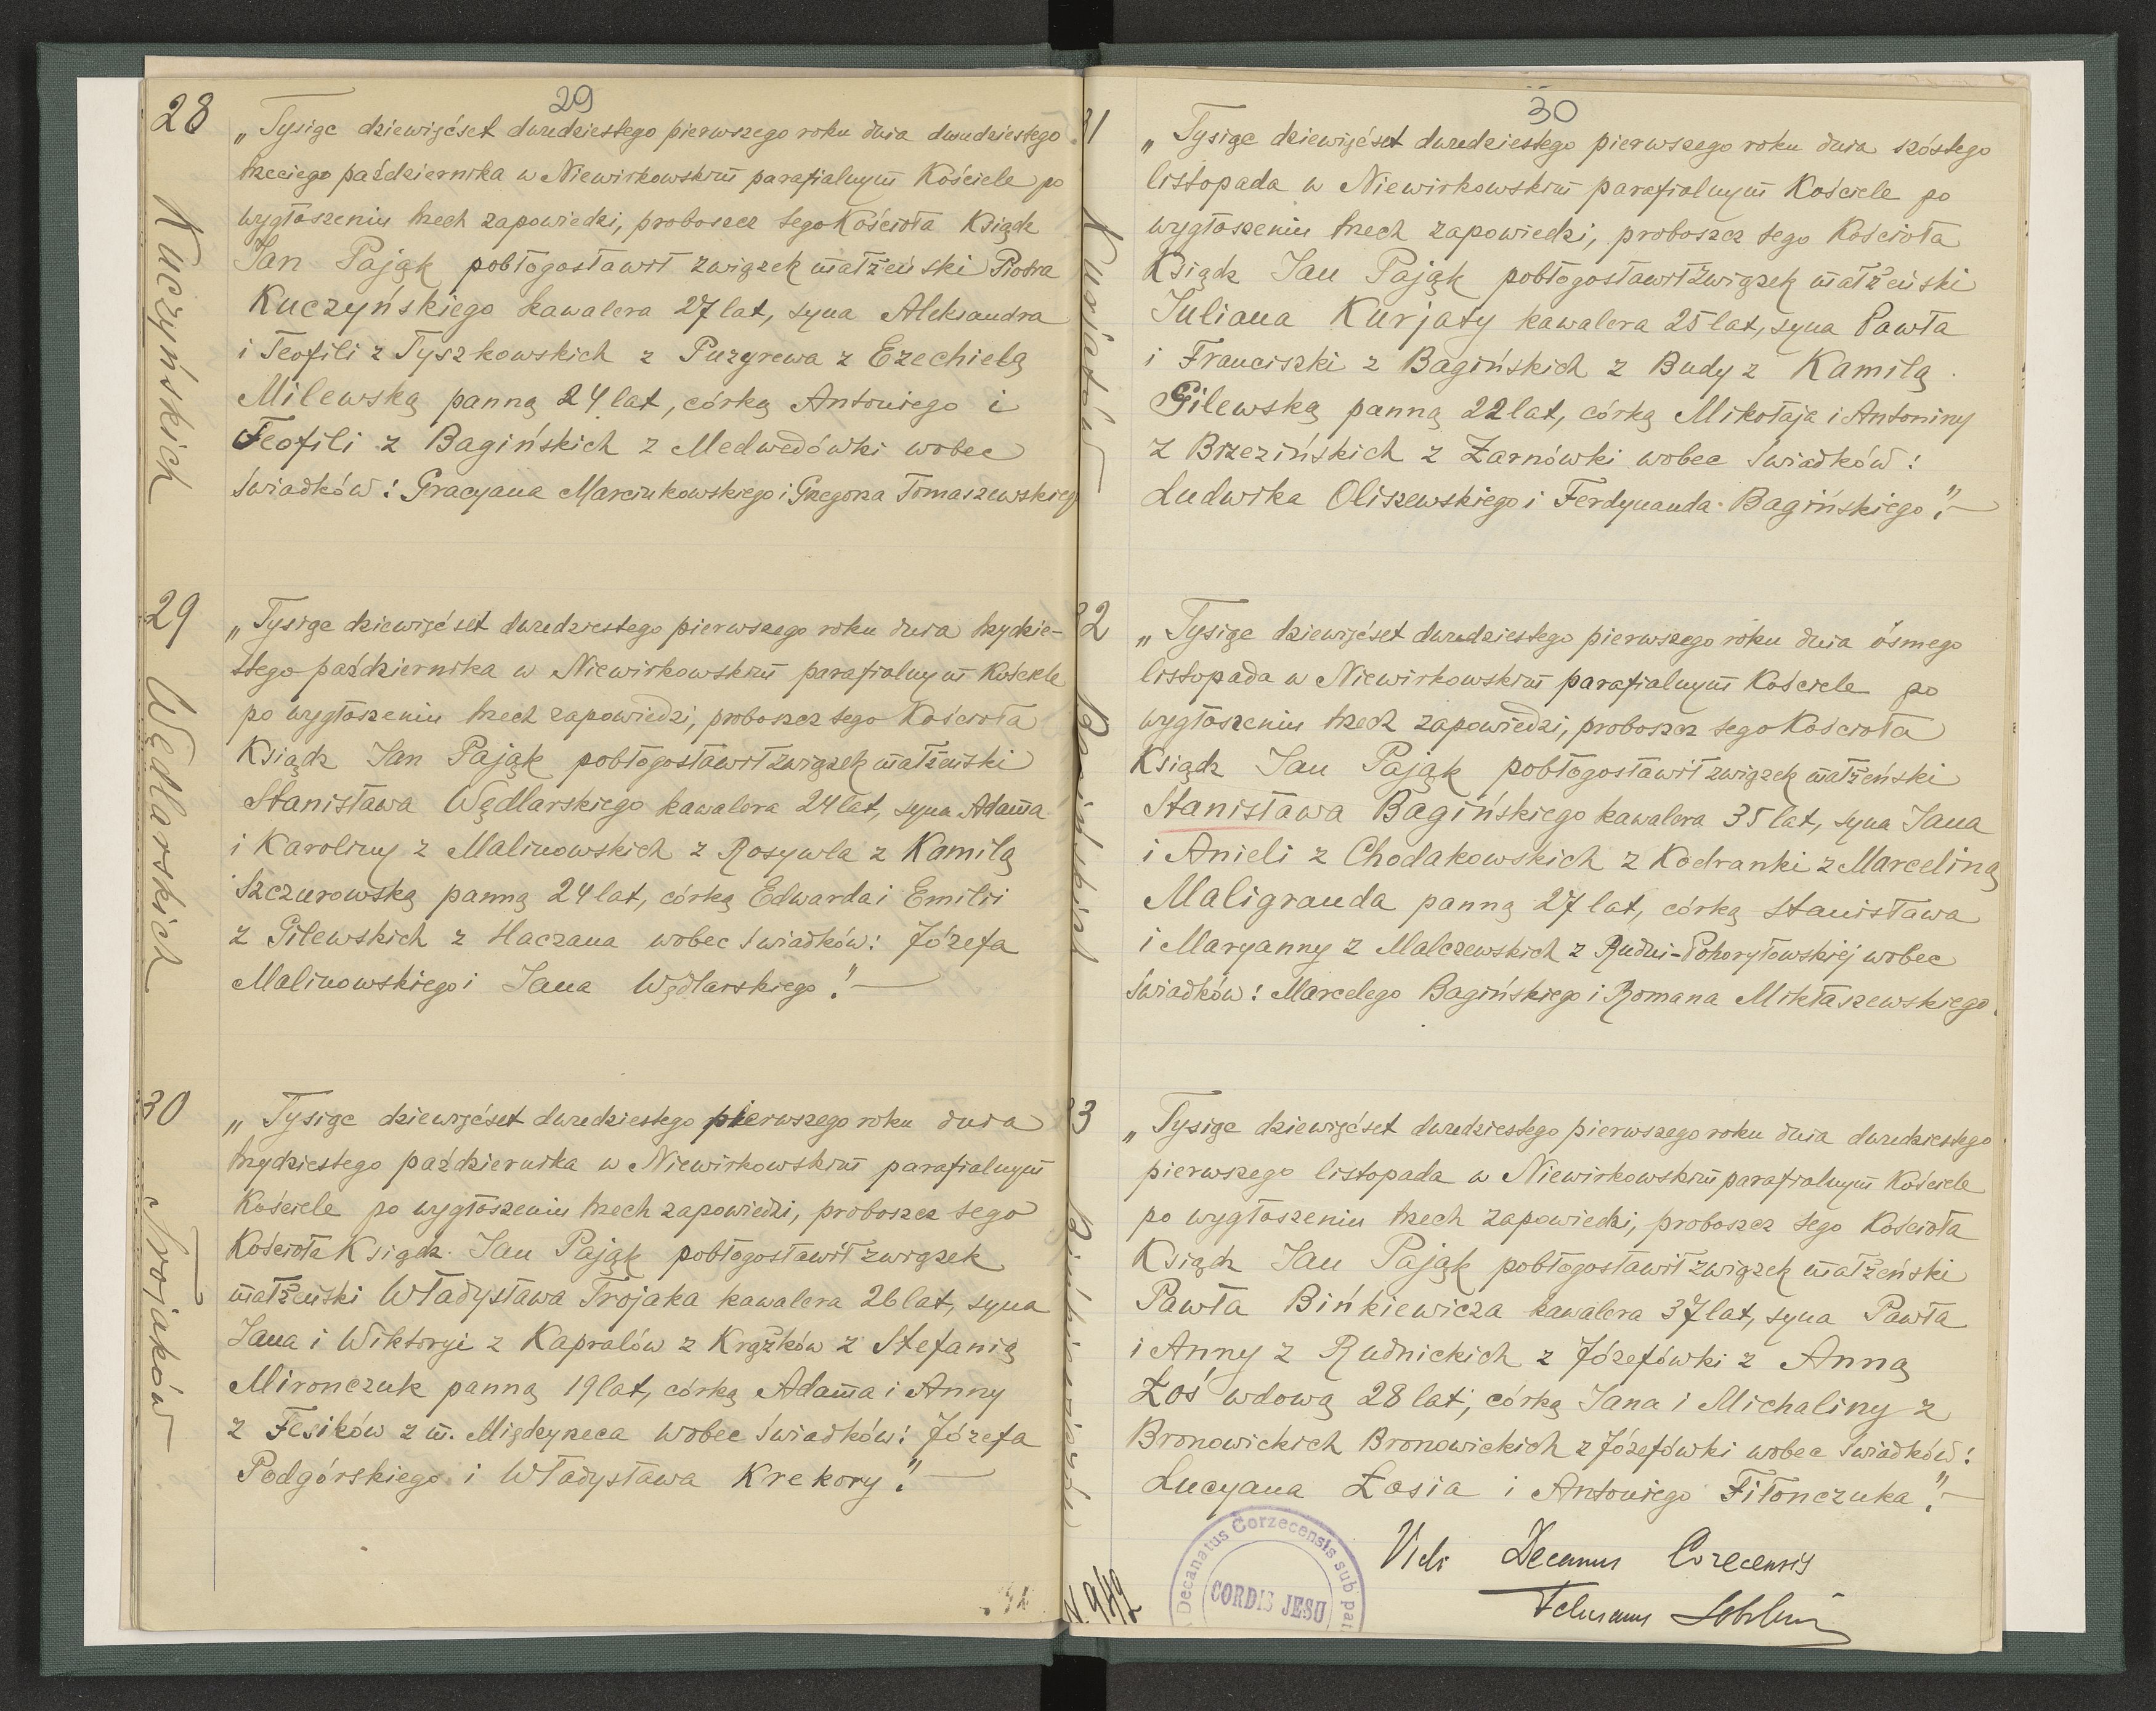 29
28
Kuczyńskich
„Tysiąc dziewięćset dwudziestego pierwszego roku dnia dwudziestego
trzeciego października w Niewirkowskim parafialnym Kościele po
wygłoszeniu trzech zapowiedzi, proboszcz tego Kościoła Ksiądz
Jan Pająk pobłogosławił związek małżeński Piotra
Kuczyńskiego kawalera 27 lat, syna Aleksandra
i Teofili z Tyszkowskich z Puzyrewa z Ezechielą
Milewską panną 24 lat, córką Antoniego i
Teofili z Bagińskich z Medwedówki wobec
świadków: Gracyana Marcinkowskiego i Grzegorza Tomaszewskiego
29
Wędlarskich
„Tysiąc dziewięćset dwudziestego pierwszego roku dnia trzydzie-
stego października w Niewirkowskim parafialnym Kościele
po wygłoszeniu trzech zapowiedzi, proboszcz tego Kościoła
Ksiądz Jan Pająk pobłogosławił związek małżeński
Stanisława Wędlarskiego kawalera 24 lat, syna Adama
i Karoliny z Malinowskich z Rosywla z Kamilą
Szczurowską panną 24 lat, córką Edwarda i Emilii
z Gilewskich z Haczana wobec świadków: Józefa
Malinowskiego i Jana Wędlarskiego."—
30
Trojaków
„Tysiąc dziewięćset dwudziestego pierwszego roku dnia
trzydziestego października w Niewirkowskim parafialnym
Kościele po wygłoszeniu trzech zapowiedzi, proboszcz tego
Kościoła Ksiądz Jan Pająk pobłogosławił związek
małżeński Władysława Trojaka kawalera 26 lat, syna
Jana i Wiktoryi z Kapralów z Krążków z Stefanią
Mironczuk panną 19 lat, córką Adama i Anny
z Fesików z m. Międzyrzeca wobec świadków: Józefa
Podgórskiego i Władysława Krekory."—
30
31
Kurjatów
„Tysiąc dziewięćset dwudziestego pierwszego roku dnia szóstego
listopada w Niewirkowskim parafialnym Kościele po
wygłoszeniu trzech zapowiedzi, proboszcz tego Kościoła
Ksiądz Jan Pająk pobłogosławił związek małżeński
Juliana Kurjaty kawalera 25 lat, syna Pawła
i Franciszki z Bagińskich z Budy z Kamilą
Gilewską panną 22 lat, córką Mikołaja i Antoniny
z Brzezińskich z Żarnówki wobec świadków:
Ludwika Oliszewskiego i Ferdynanda Bagińskiego."—
32
Bagińskich
„Tysiąc dziewięćset dwudziestego pierwszego roku dnia ósmego
listopada w Niewirkowskim parafialnym Kościele po
wygłoszeniu trzech zapowiedzi, proboszcz tego Kościoła
Ksiądz Jan Pająk pobłogosławił związek małżeński
Stanisława Bagińskiego kawalera 35 lat, syna Jana
i Anieli z Chodakowskich z Kodranki z Marceliną
Maligranda panną 27 lat, córką Stanisława
i Maryanny z Malczewskich z Rudni-Pohoryłowskiej wobec
świadków: Marcelego Bagińskiego i Romana Mikłaszewskiego.
33
Bińkiewiczów
„Tysiąc dziewięćset dwudziestego pierwszego roku dnia dwudziestego
pierwszego listopada w Niewirkowskim parafialnym Kościele
po wygłoszeniu trzech zapowiedzi, proboszcz tego Kościoła
Ksiądz Jan Pająk pobłogosławił związek małżeński
Pawła Bińkiewicza kawalera 37 lat, syna Pawła
i Anny z Rudnickich z Józefówki z Anną
Łoś wdową 28 lat, córką Jana i Michaliny z
Bronowickich Bronowickich z Józefówki wobec świadków:
Lucyana Łosia i Antoniego Fiłonczuka."—
Vidi Decanus Corecensis
N. 942
Decanatus Corzecensis sub pat
CORDIS JESU